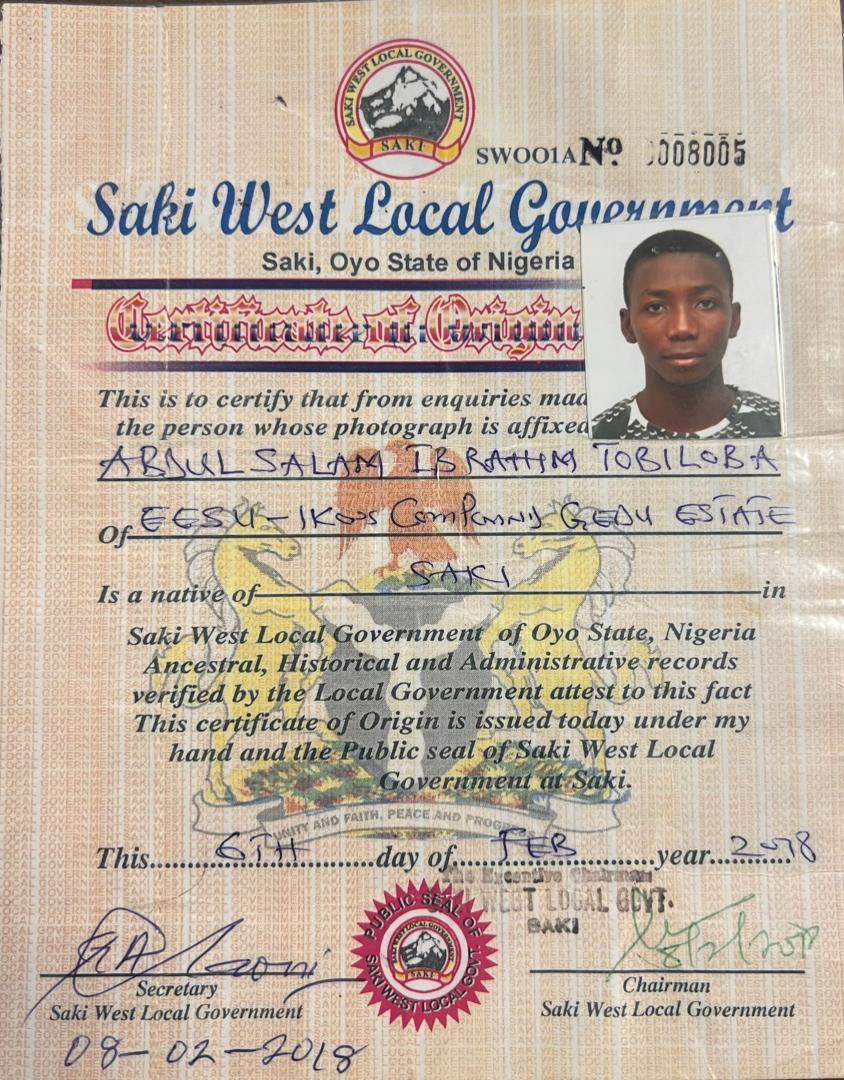 SAKI WEST LOCAL GOVERNMENT
SAKI
SWOO1A Nº 0008005
Saki West Local Government
Saki, Oyo State of Nigeria
Certificate of Origin
This is to certify that from enquiries
the person whose photograph is affixed
ABDUL SALAM IBRAHIM TOBILOBA
Of EESU-IKO's Company GEDU ESTATE
Is a native of SAKI in
Saki West Local Government of Oyo State, Nigeria
Ancestral, Historical and Administrative records
verified by the Local Government attest to this fact
This certificate of Origin is issued today under my
hand and the Public seal of Saki West Local
Government at Saki.
UNITY AND FAITH, PEACE AND
This 6TH day of FEB year 2018
The Executive Chairman
WEST LOCAL GOVT.
SAKI
PUBLIC SEAL OF
SAKI WEST LOCAL GOVT
SAKI WEST LOCAL GOVERNMENT
SAKI
Secretary
Saki West Local Government
08-02-2018
Chairman
Saki West Local Government